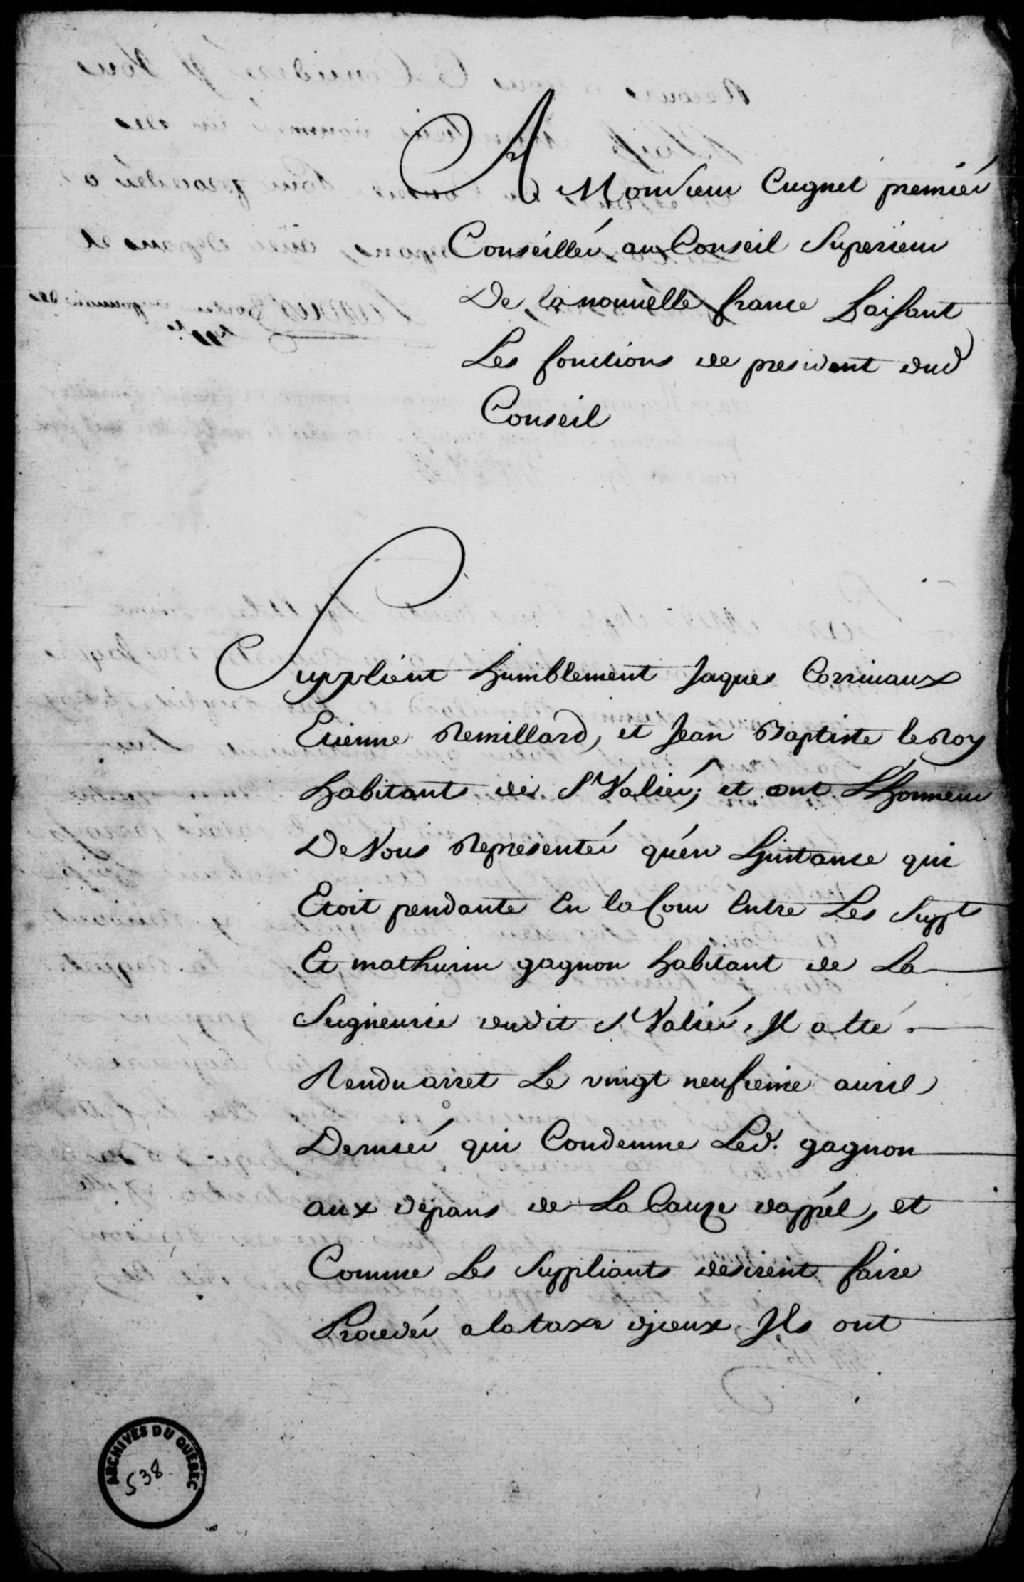 A Monsieur Cugnet premiér
Conseillér au Conseil Superieur
De la nouvelle france faisant
Les fonctions de president dud
Conseil
Supplient humblement Jaques Corriuaux
Etienne Remillard, et Jean Baptiste le Roy
habitants de St Valiér, et ont L'honneur
De Vous Representér qu'én Linstance qui
Etoit pendante En la Cour Entre Les Suppts
Et mathurin gagnon habitant de La
Seigneurie dudit St Valiér, Il a Eté
Rendu arret Le vingt neufieme auril
Derniér qui Condemne Led. gagnon
aux dépans de La Cauze dappél, et
Comme Les Suppliants desirent faire
Procedér a la taxe djceux Ils ont
ARCHIVES DU QUÉBEC
538